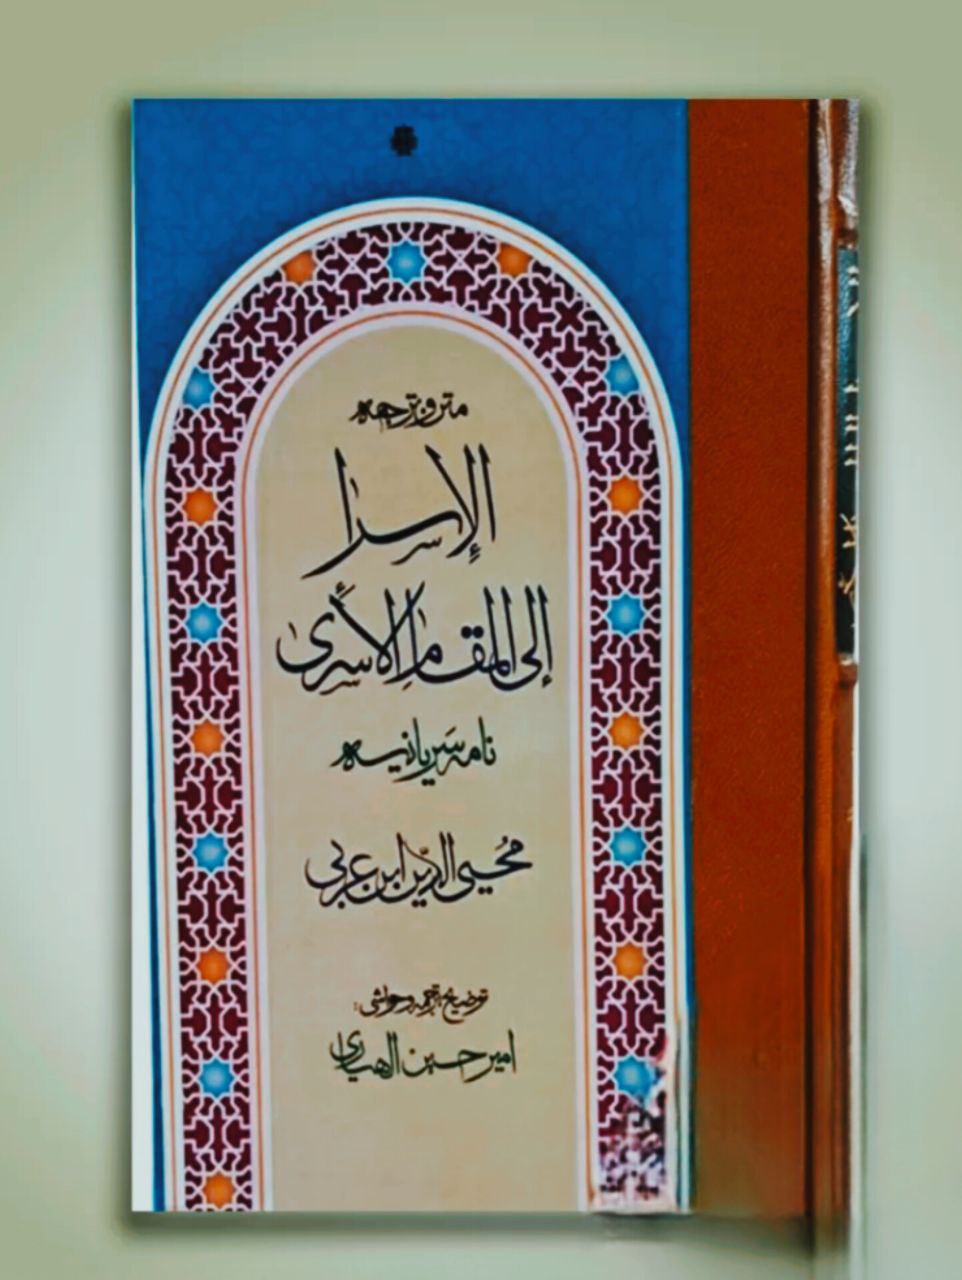 متن و ترجمه
الإسرا
إلى المقام الأسرى
نامه سریانیه
محُیی الدّین ابن عربی
توضیح، ترجمه و حواشی:
امیر حسین الهیاری